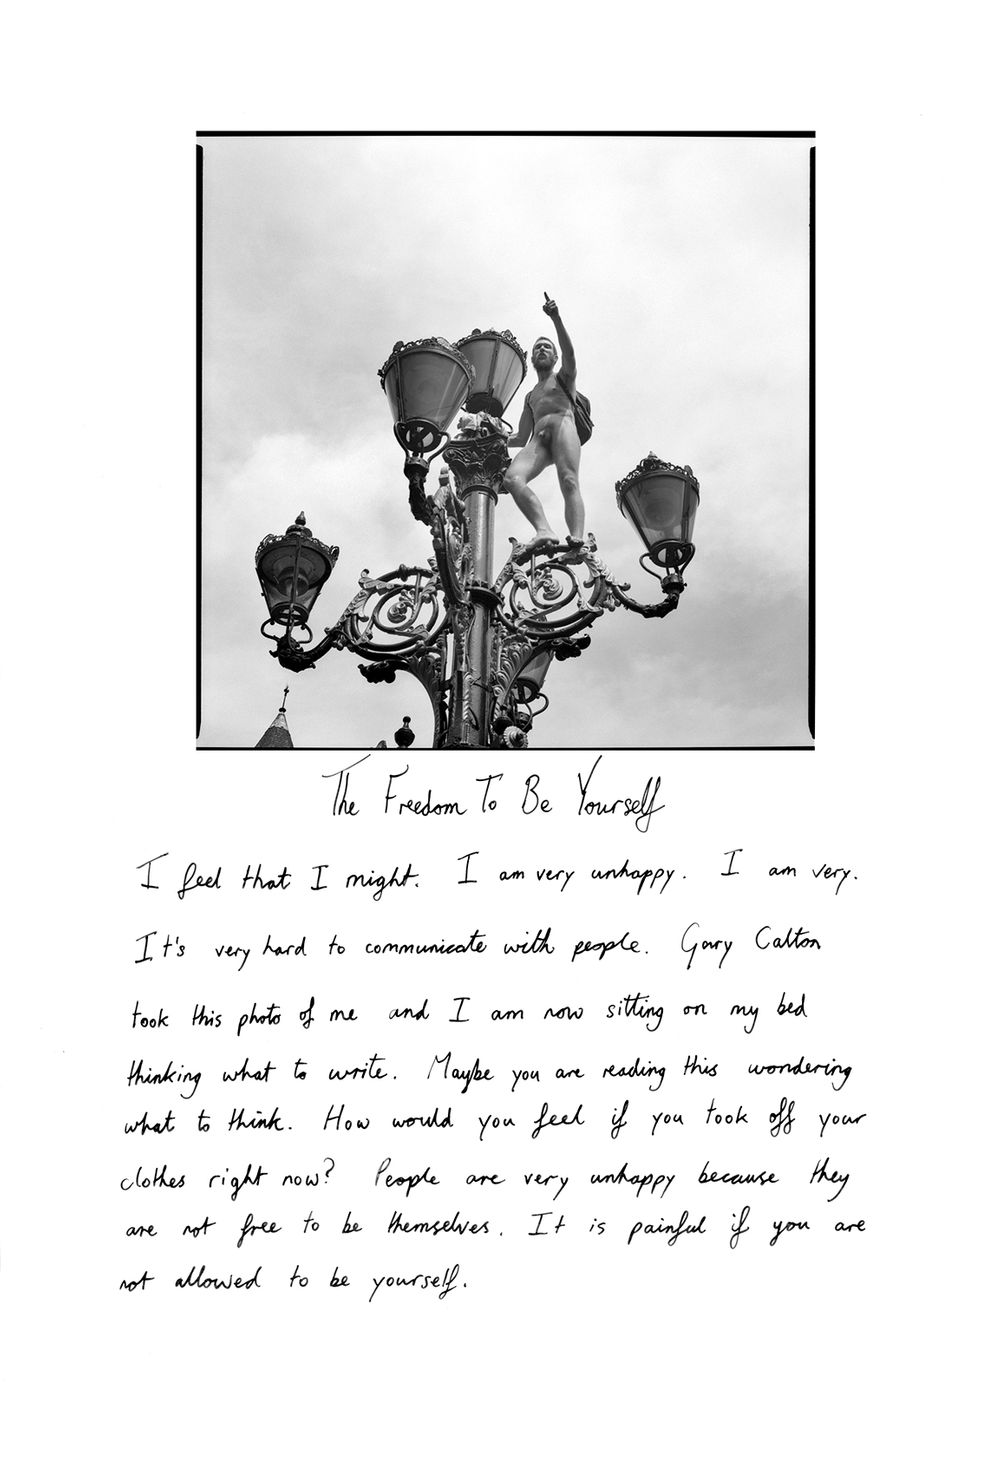 The Freedom To Be Yourself
I feel that I might. I am very unhappy. I am very.
It's very hard to communicate with people. Gary Calton
took this photo of me and I am now sitting on my bed
thinking what to write. Maybe you are reading this wondering
what to think. How would you feel if you took off your
clothes right now? People are very unhappy because they
are not free to be themselves. It is painful if you are
not allowed to be yourself.